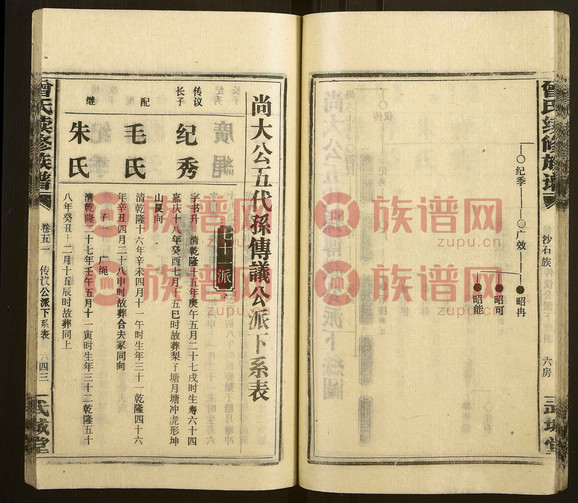 曾氏续修族谱
沙石族
六房
三武城堂
纪季
广效
昭冉
昭可
昭能
尚大公五代孫傳議公派下系表
七十一派
传议
长子
纪秀
字书升 清乾隆十五年庚午五月二十七戌时生寿六十四
嘉庆十八年癸酉七月十五巳时故葬梨子塘月塘冲虎形坤
山艮向
配
毛氏
清乾隆十六年辛未四月十一午时生年三十一乾隆四十六
年辛丑四月二十八申时故葬合夫冢同向
子 广绳
继
朱氏
清乾隆二十七年壬午五月十一寅时生年三十二乾隆五十
八年癸丑二月十五辰时故葬同上
曾氏续修族谱
卷五二
传议公派下系表
六四三
武城堂
族谱网
zupu.cn
族谱网
zupu.cn
族谱网
zupu.cn
族谱网
zupu.cn